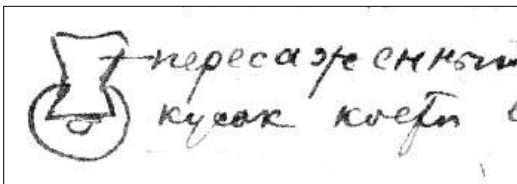 пересаженный
кусок кости